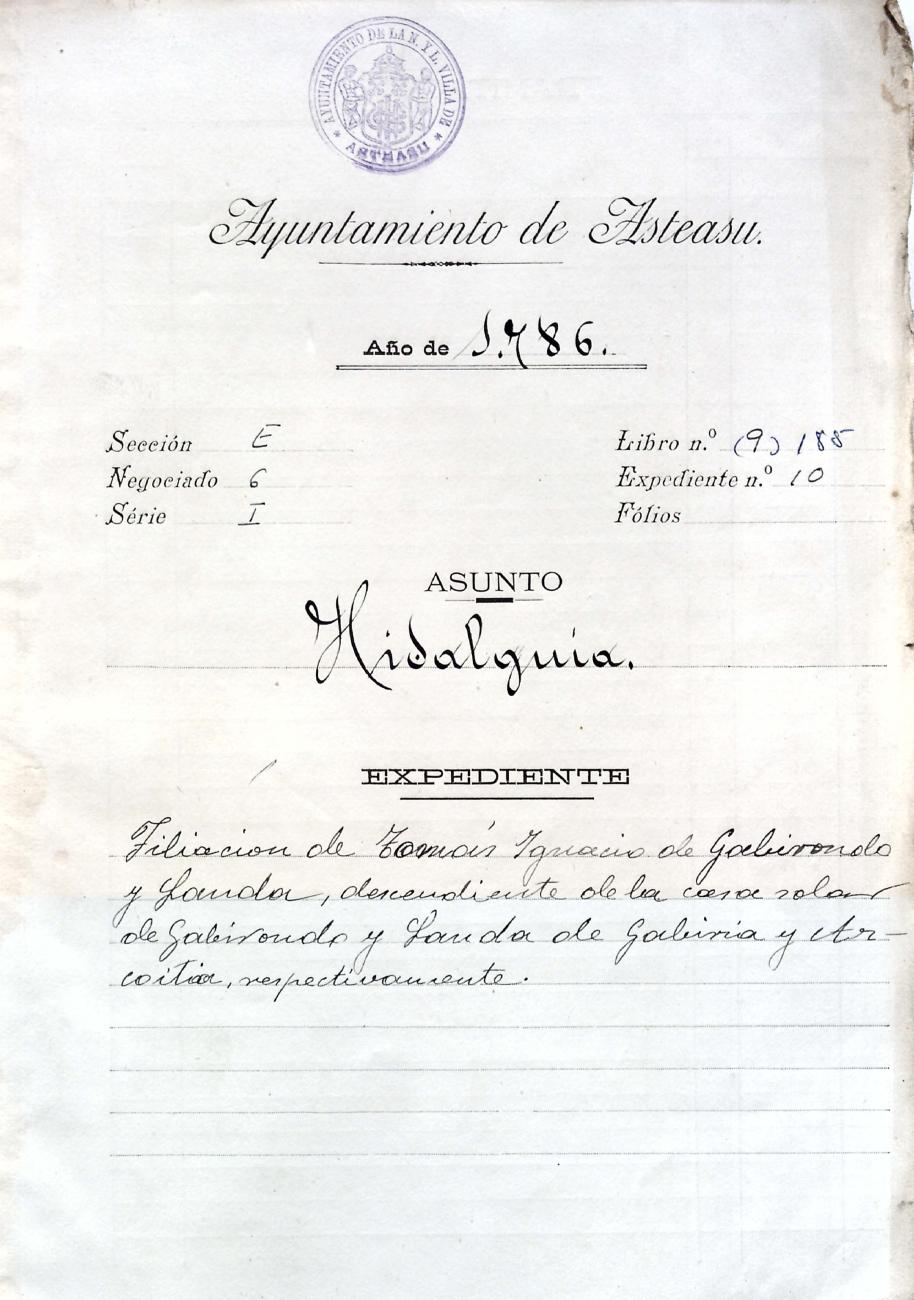 AYUNTAMIENTO DE LA N. Y L. VILLA DE
* ASTEASU *
Ayuntamiento de Asteasu.
Año de 1.786.
Sección E
Negociado 6
Série I
Libro n.º (9) 188
Expediente n.º 10
Fólios
ASUNTO
Hidalguía.
EXPEDIENTE
Filiacion de Tomás Ignacio de Gabirondo
y Landa, descendiente de la casa solar
de Gabirondo y Landa de Gabiria y Az-
coitia, respectivamente.